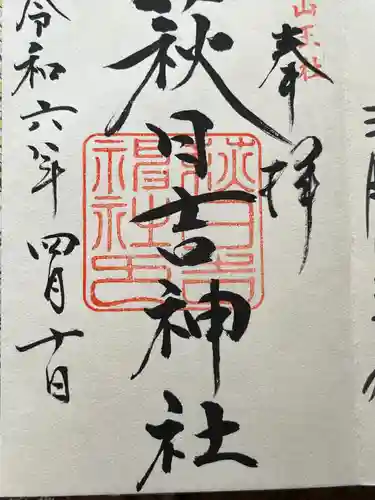 山王社
奉拝
萩日吉神社
萩日吉神社印
令和六年四月十日